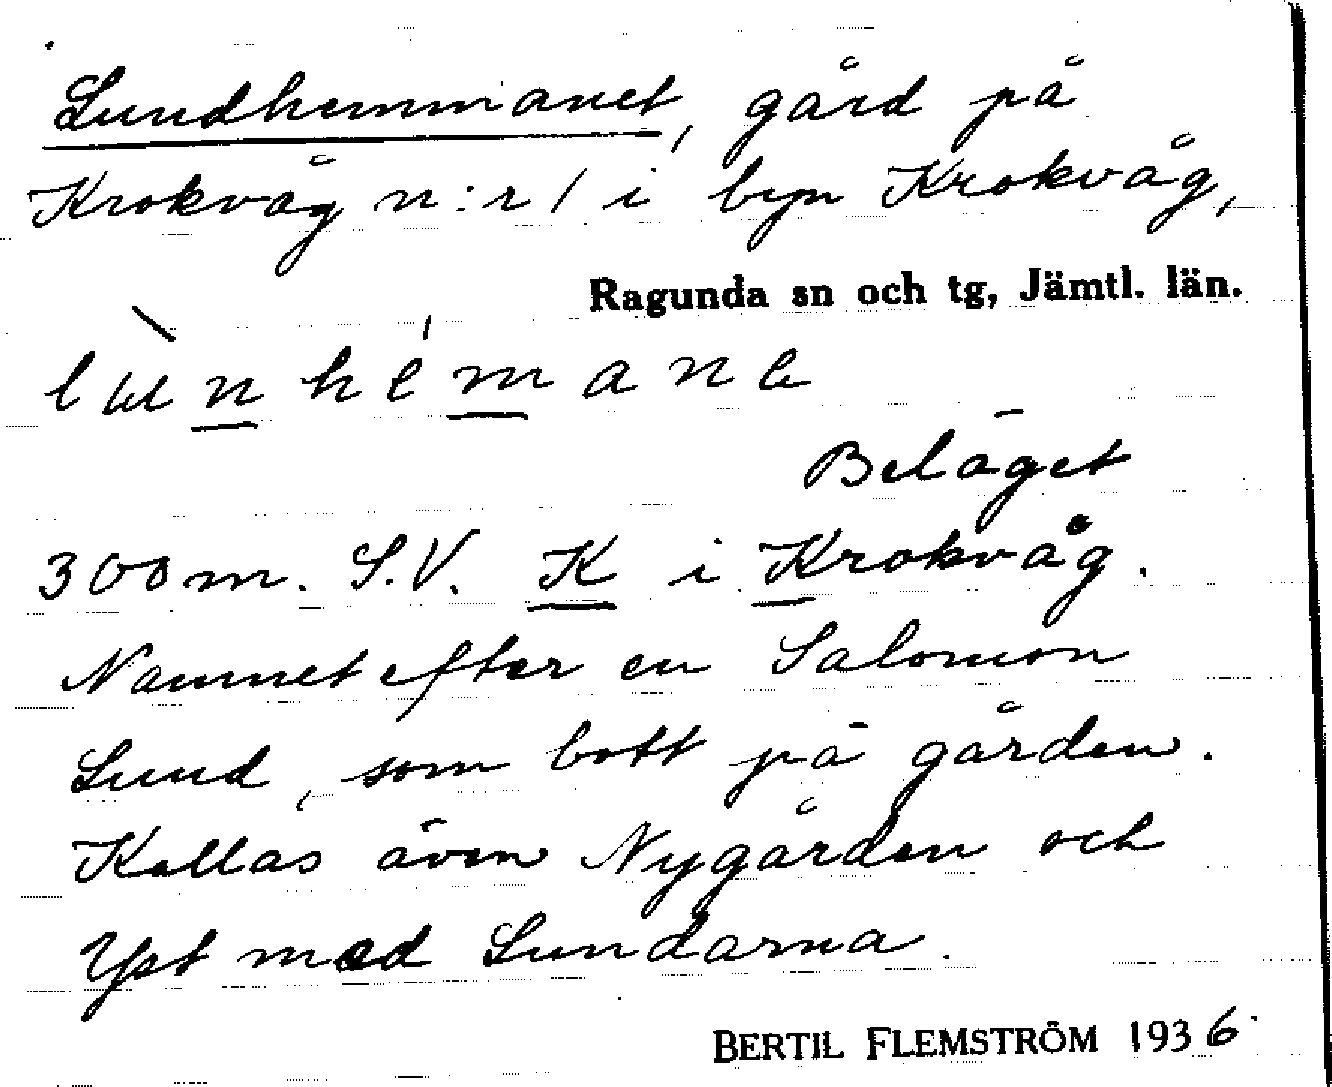 Lundhemmanet, gård på
Krokvåg n:r 1 i byn Krokvåg,
Ragunda sn och tg, Jämtl. län.
Beläget
300 m. S.V. K i Krokvåg.
Namnet efter en Salomon
Lund, som bott på gården.
Kallas även Nygården och
Yst med Lundarna.
BERTIL FLEMSTRÖM 1936